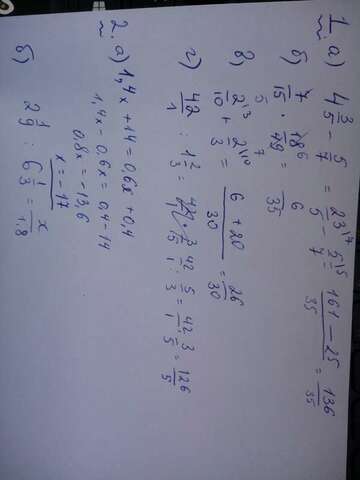 1. а) 4 3/5 - 5/7 = 23\7/5 - 5\5/7 = 161 - 25/35 = 136/35
б) 7/15 · 18 6/49 = 6/35
5 7
в) 2\3/10 + 2\10/3 = 6 + 20/30 = 26/30
г) 42/1 : 1 2/3 = 42/1 : 5/3 = 42/1 · 3/5 = 126/5
2. а) 1,4x + 14 = 0,6x + 0,4
1,4x - 0,6x = 0,4 - 14
0,8x = -13,6
x = -17
б) 2 4/9 : 6 1/3 = x/1,8